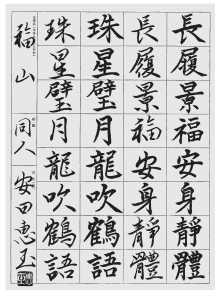 長履景福安身靜體
長履景福安身靜體
珠星璧月龍吹鶴語
珠星璧月龍吹鶴語
福山 同人 安田惠玉